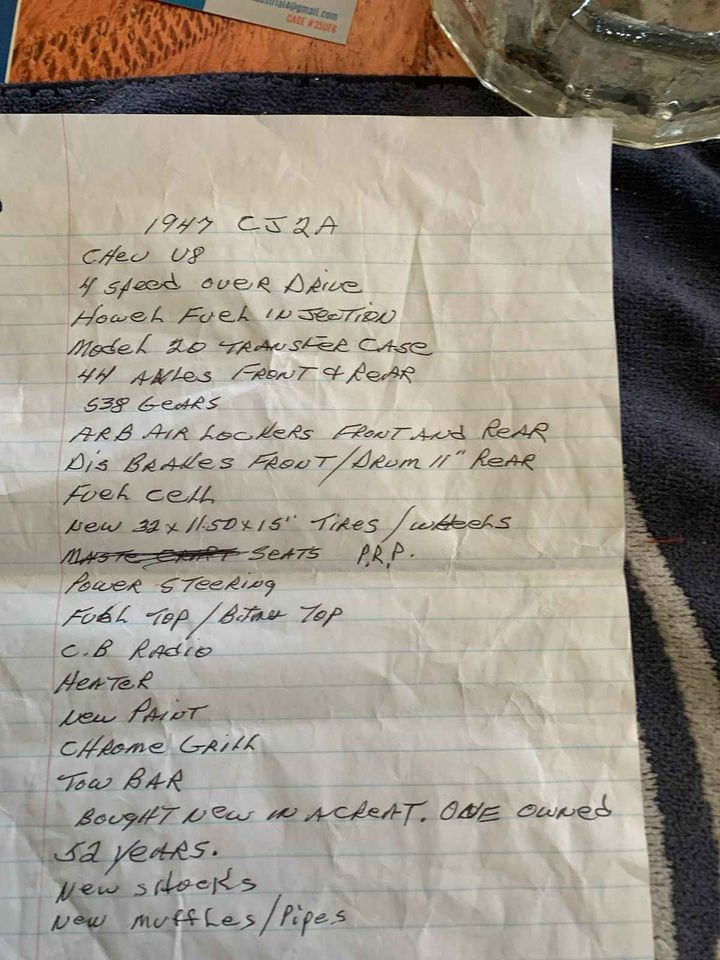 ustrial4@gmail.com
CAGE #35UF6
1947 CJ2A
CHev V8
4 speed over Drive
Howel Fuel injection
Model 20 TRANSFER CASE
44 AXles FRONT & ReAR
538 GeARS
ARB AIR LOCKERS FRONT AND ReAR
Dis BRAKes FRONT/DRum 11" ReAR
Fuel cell
New 32 x 11.50 x 15" Tires / wheels
SeATS P.R.P.
Power STeering
Full Top / Top
C.B RADio
HeATeR
New PAINT
CHRome GRill
Tow BAR
BougHT New in A CReAT. ONE owned
52 yeARS.
New sHocks
New muffles/Pipes